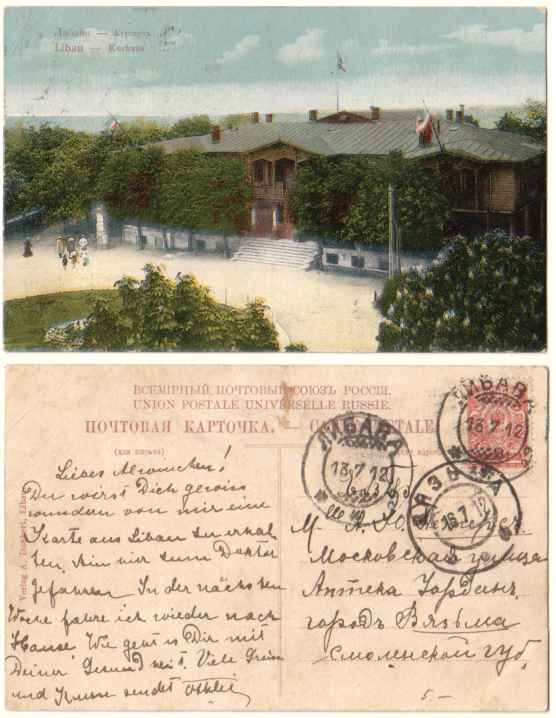 Либава — Кургаузъ
Libau — Kurhaus
ВСЕМІРНЫЙ ПОЧТОВЫЙ СОЮЗЪ РОССІЯ.
UNION POSTALE UNIVERSELLE RUSSIE.
ПОЧТОВАЯ КАРТОЧКА. — CARTE POSTALE.
(для письма)
ЛИБАВА
13 7 12
ЛИБАВА
13.7.12
ВЯЗЬМА
16.7.12
Liebes
Du wirst Dich gewiss
wundern von mir eine
Karte aus Libau zu erhal
ten. Bin hier zum Doktor
gefahren. In der nächsten
Woche fahre ich wieder nach
Hause. Wie geht es Dir mit
Deiner Gesundheit. Viele Grüsse
und Küsse sendet
М. А. Ю.
Московская улица
Аптека
городъ Вязьма
Смоленской губ.
Verlag A. Libau
5.–